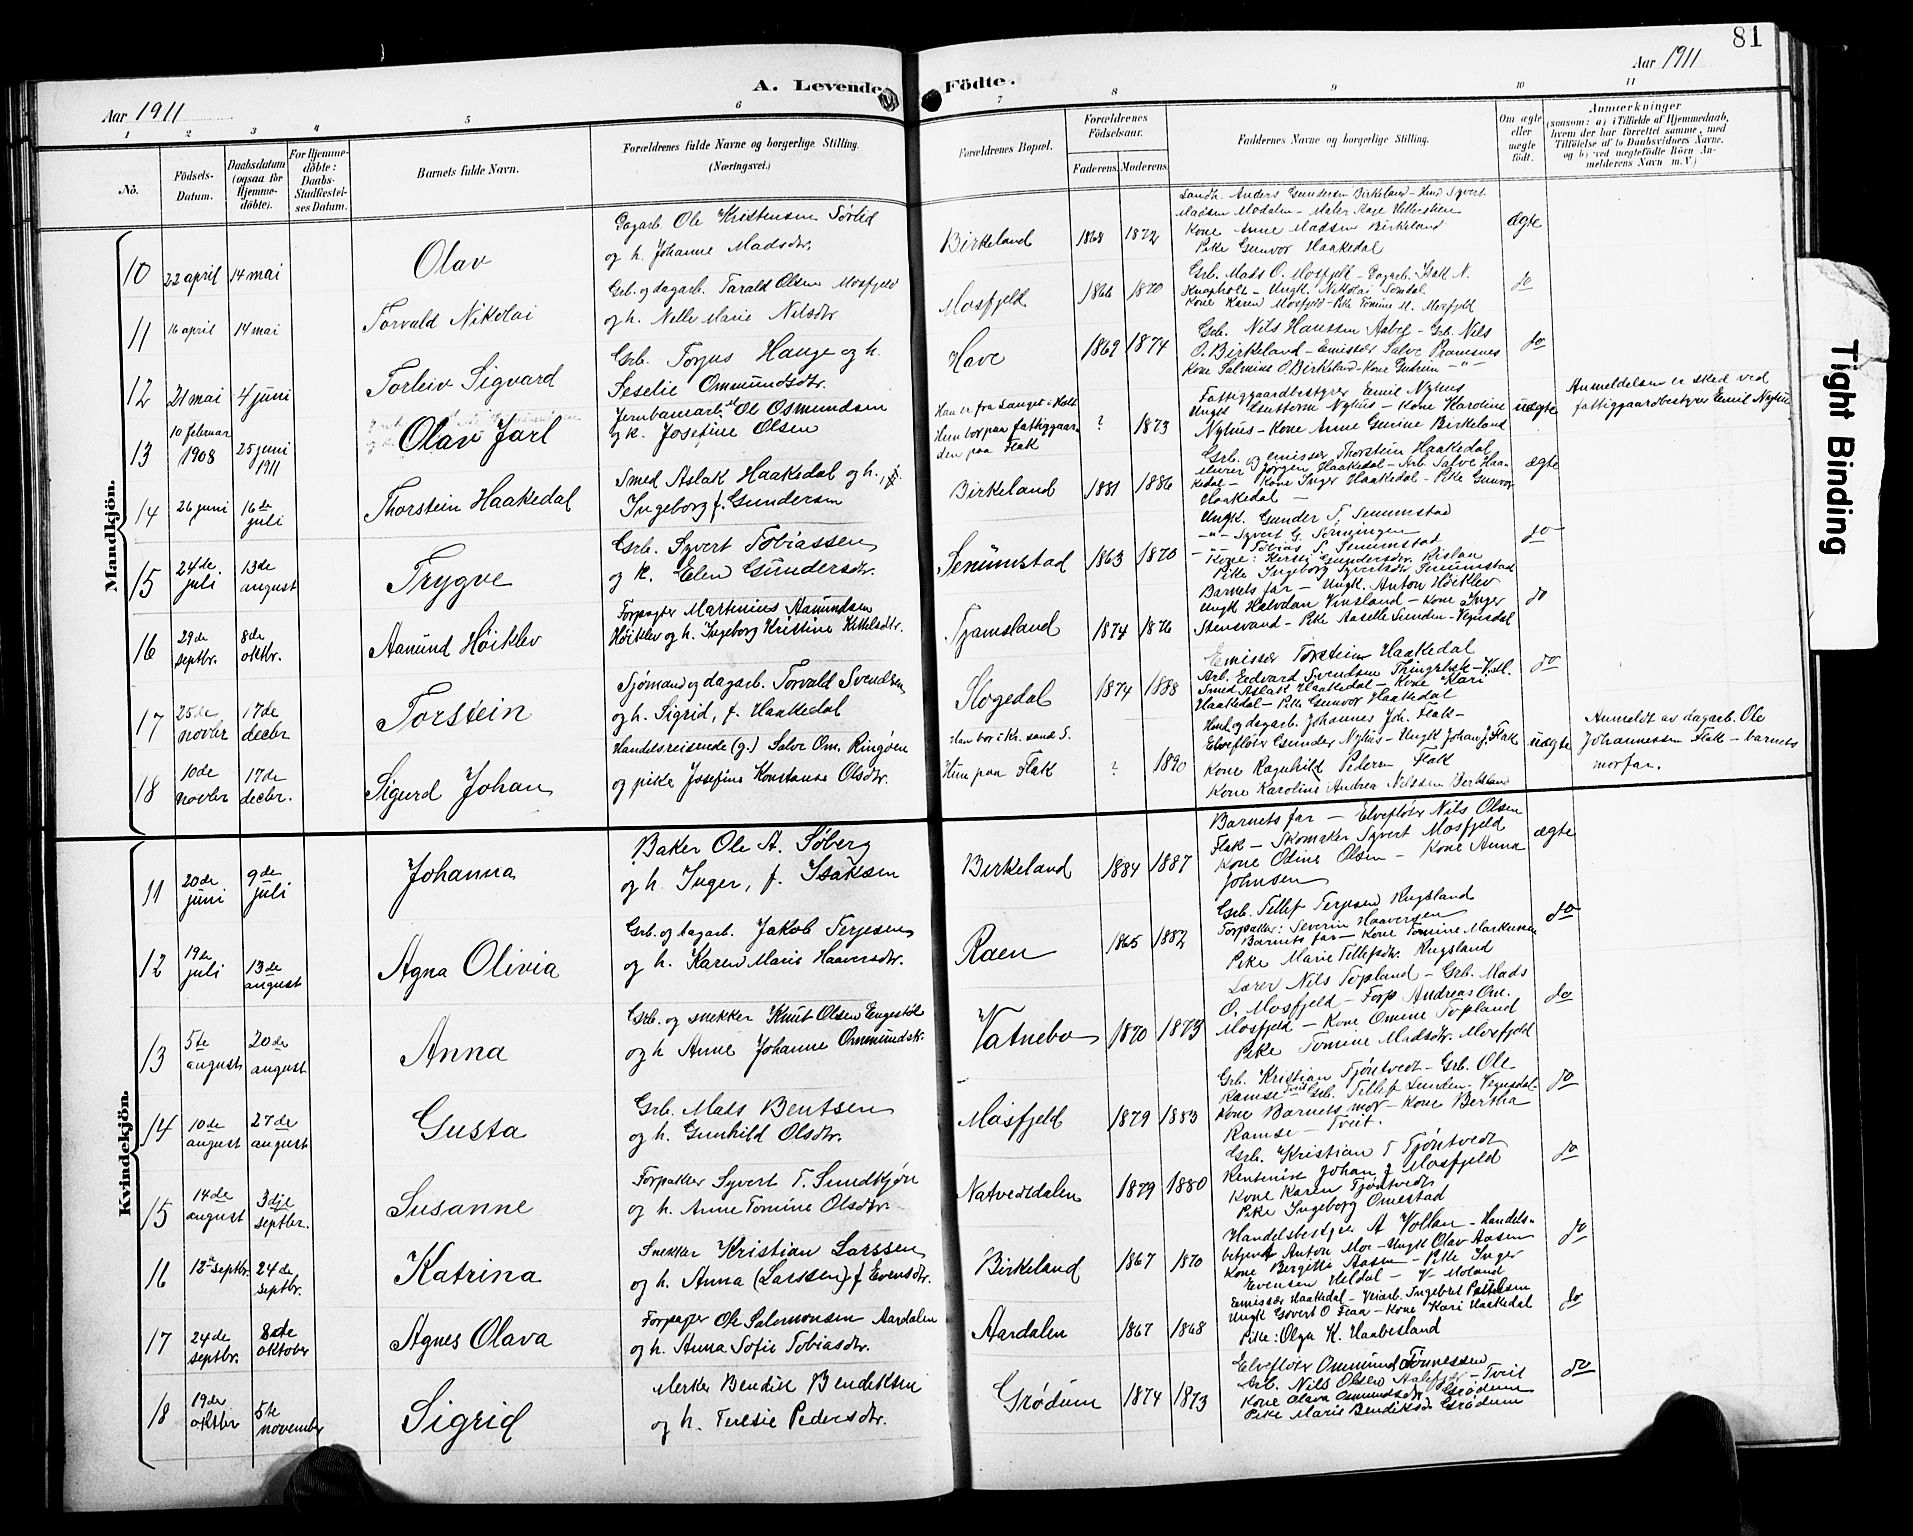 81
Aar 1911
A. Levende
Födte.
Aar 1911
1 2 3 4 5 6 7 8 9 10 11
No.
Födsels-Datum.
Daabsdatum (ogsaa for Hjemme-döbte).
For Hjemme-döbte: Daabs-Stadfæstel-ses Datum.
Barnets fulde Navn.
Forældrenes fulde Navne og borgerlige Stilling. (Næringsvei.)
Forældrenes Bopæl.
Forældrenes Födselsaar.
Faderens. Moderens.
Faddernes Navne og borgerlige Stilling.
Om ægte eller uægte födt.
Anmærkninger (saasom: a) i Tilfælde af Hjemmedaab, hvem der har forrettet samme, med Tilföielse af to Daabsvidners Navne. og b) ved uægtefödte Börn An-melderens Navn m. V.)
Mandkjön.
10 22 april 14 mai Olav
Dagarb. Ole Kristensen Tørlid
og h. Johanne Madsdtr.
Birkeland 1868 1872
Landh. Anders Gundersen Birkeland - Hmd Syvert
Madsen Modalen - Maler Aage Hellerstien
Kone Anne Madsen Birkeland
Pike Gunvor Haakedal
ægte
11 16 april 14 mai Torvald Nikolai
Grb. og dagarb. Tarald Olsen Mosfjeld
og h. Nelle Marie Nilsdtr
Mosfjeld 1866 1870
Grb. Mads O. Mosfjeld - Dagarb. Isak N.
Knapholt - Ungk. Nikolai Tondal
Kone Karen Mosfjeld - Pike Tomine M. Mosfjeld
do
12 21 mai 4 juni Torleiv Sigvard
Grb. Torjus Hauge og h.
Seselie Ommundsdtr.
Have 1869 1874
Grb. Nils Hanssen Aabel - Grb. Nils
O. Birkeland - Emissær Salve Bramsnes
Kone Salmine O. Birkeland - Kone Gudrun - " -
do
13 10 februar 1908 25 juni 1911 Olav Jarl
Jernbanearb. Ole Osmundsen
og k. Josefine Olsen
Han er fra Sanget i Holt
Hun bor paa fattiggaar-
den paa Flak
? 1873
Fattiggaardbestyrer Emil Nyhus
Ungk Guttorm Nyhus - Kone Karoline
Nyhus - Kone Anne Gurine Birkeland
uægte
Anmeldelsen er sked ved
fattiggaardbestyrer Emil Nyhus
14 26 juni 16de juli Thorstein Haakedal
Smed Aslak Haakedal og h.
Ingeborg f. Gundersen
Birkeland 1881 1886
Grb. og emissær Thorstein Haakedal
Murer Jørgen Haakedal - Arb. Salve Haa-
kedal - Kone Inger Haakedal - Pike Gunvor
Haakedal -
ægte
15 24de juli 13de august Trygve
Grb. Syvert Tobiassen
og k. Elen Gundersdtr.
Senumstad 1863 1870
Ungk. Gunder S. Senumstad
- " - Syvert G. Tønningen
- " - Tobias S. Senumstad
Kone: Kirsti Gundersdtr. Rislaa
Pike Ingeborg Syvertsdtr Senumstad
do
16 29de septbr. 8de oktbr. Aamund Höiklev
Forpagter Martinius Aamundsen
Höiklev og h. Ingeborg Kristine Kittelsdtr.
Tjamsland 1874 1876
Barnets far - Ungk. Anton Höiklev
Ungk Halvdan Vinsland - Kone Inger
Stensvand - Pike Aaselle Lunden - Vegusdal
do
17 25de novbr 17de decbr Torstein
Sjömand og dagarb. Torvald Svendsen
og h. Sigrid, f. Haakedal
Slogedal 1874 1888
Emissær Torstein Haakedal
Arb. Edvard Svendsen
Smed Aslak Haakedal - Kone Kari
Haakedal - Pike Gunvor Haakedal
do
18 10de novbr 17de decbr. Sigurd Johan
Handelsreisende (g.) Salve Om. Ringøen
og pike Josefine Konstanse Olsdtr.
Han bor i Kr. sand S.
Hun paa Flak
? 1890
Hmd og dagarb. Johannes Joh. Flak -
Elvefløter Gunder Nyhus - Ungk Johan J. Flak
Kone Ragnhild Pedersen Flak
Kone Karoline Andrea Nilssen Berkeland
uægte
Anmeldt av dagarb. Ole
Johannessen Flak - barnets
morfar.
Kvindekjön.
11 20de juni 9de juli Johanna
Baker Ole A. Søberg
og h. Inger, f. Isaksen
Birkeland 1884 1887
Barnets far - Elvefløter Nils Olsen
Flak - Skomaker Syvert Mosfjeld
Kone Odine Olsen - Kone Anna
Johnsen
ægte
12 19de juli 13de august Agna Olivia
Grb. og dagarb. Jakob Terjesen
og h. Karen Marie Haaversdtr.
Raen 1865 1882
Grb. Tellef Terjesen Rugsland
Forpakter: Severin Haaversen
Barnets far - Kone Tomine Markussen
Pike Marie Tellefsdtr. Rugsland
do
13 5te august 20de august Anna
Grb. og snekker Knut Olsen Engestøl
og h Anne Johanne Ommundsdtr.
Vatnebo 1870 1873
Lærer Nils Topland - Grb. Mads
O. Mosfjeld - Forp. Andreas Om.
Mosfjeld - Kone Omine Topland
Pike Tomine Madsdtr. Mosfjeld
do
14 10de august 27de august Gusta
Grb. Mads Bentsen
og h. Gunhild Olsdtr.
Mosfjeld 1879 1883
Grb. Kristian Tjöntvedt - Grb. Ole
Ramse Tveit Grb. Tellef Lunden - Vegusdal
Kone Barnets mor - Kone Bertha
Ramse - Tveit.
do
15 14de august 3dje septbr. Susanne
Forpakter Syvert T. Sundtjøn
og h. Anne Tomine Olsdtr.
Natvedtdalen 1879 1880
Grb. Kristian T Tjöntvedt
Rentenist Johan J Mosfjeld
Kone Karen Tjöntvedt
Pike Ingeborg Omestad
do
16 12te septbr. 24de septbr. Katrina
Snekker Kristian Larssen
og h. Anna (Larssen) f Evensdtr.
Birkeland 1867 1870
Handelsbestyrer A Vollan - Handels-
betjent Anton Moe - Ungk Olav Aasen
Kone Bergitte Aasen - Pike Inger
Evensen Heldal - V. Moland
do
17 24de septbr. 8de oktober Agnes Olava
Forpagter Ole Salomonsen Aardalen
og h. Anna Sofie Tobiasdtr.
Aardalen 1867 1868
Emissær Haakedal - Veiarb. Ingebret
Ungk Govert O. Flaa - Kone Kari Haakedal
Pike: Olga K. Haabesland
do
18 19de oktbr 5te november Sigrid
Merker Bendik Bendiksen
og h. Teresie Pedersdtr.
Grödum 1874 1873
Elvefløter Ommund Tønnessen
Arb. Nils Olsen - Tveit
Kone Olava Osmundsdtr. Grödum
Pike Marie Bendiksdr Grödum
do
Tight Binding